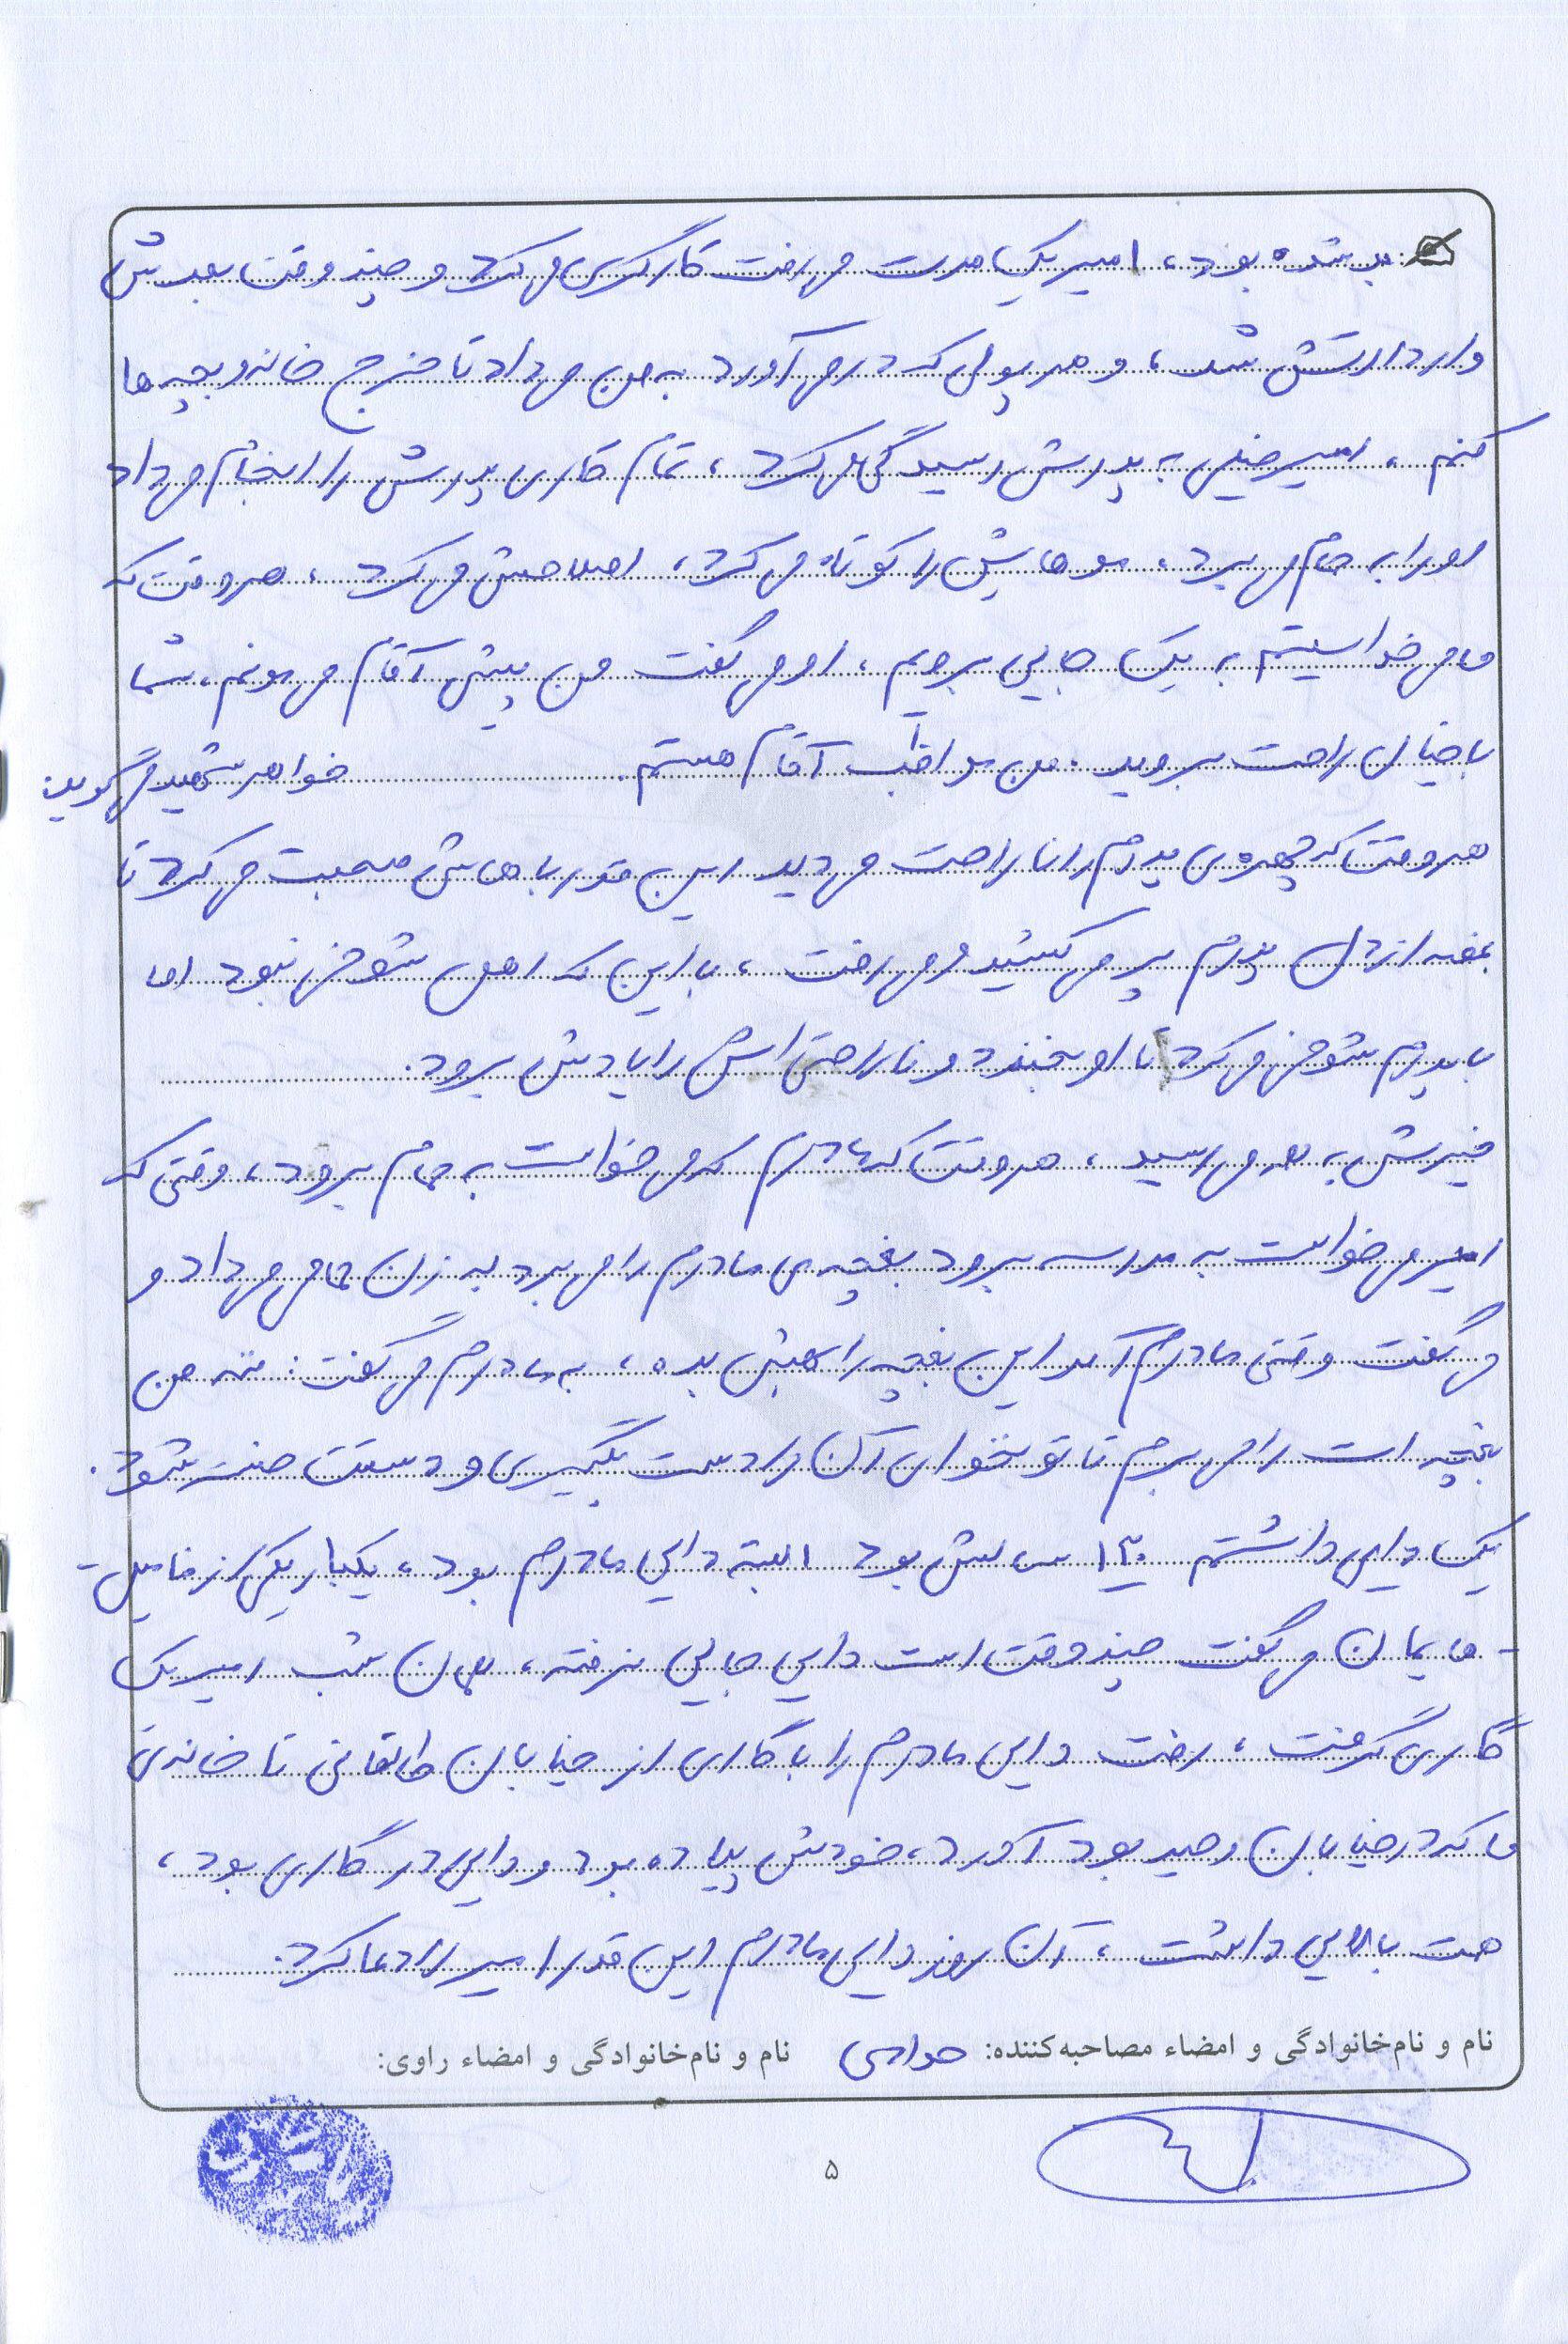 بد شده بود، امیر یک مدت می رفت کارگری می کرد و چند وقت بعدش
وارد ارتش شد، و هر پولی که در می آورد به من می داد تا خرج خانه و بچه ها
کنم، امیر خیلی به پدرش رسیدگی می کرد، تمام کاری پدرش را انجام می داد
او را به حمام می برد، موهایش را کوتاه می کرد، اصلاحش می کرد، هر وقت که
ما می خواستیم به یک جایی برویم، او می گفت من پیش آقام می مونم، شما
با خیال راحت بروید. من مواظب آقام هستم. خواهر شهید می گوید:
هر وقت که چهره ی پدرم را ناراحت می دید این قدر باهاش صحبت می کرد تا
غصه از دل پدرم پر می کشید و می رفت، با این که اهل شوخی نبود اما
با پدرم شوخی می کرد تا او بخندد و ناراحتی اش را یادش برود.
خیرش به همه می رسید، هر وقت که مادرم که می خواست به حمام برود، وقتی که
امیر می خواست به مدرسه برود بغچه ی مادرم را می برد به زن حمامی می داد و
می گفت وقتی مادرم آمد این بغچه را بهش بده، به مادرم می گفت: ننه من
بغچه ات را می برم تا تو نخوای آن را دست بگیری و دستت خسته شود.
یک دایی داشتم ۱۳۰ سالش بود البته دایی مادرم بود، یکبار یکی از فامیل-
- هایمان می گفت چند وقت است دایی جایی نرفته، همان شب امیر یک
گاری گرفت، رفت دایی مادرم را با گاری از خیابان طالقانی تا خانه ی
ما که در خیابان وحید بود آورد، خودش پیاده بود و دایی در گاری بود،
همت بالایی داشت، آن روز دایی مادرم این قدر امیر را دعا کرد.
نام و نام‌خانوادگی و امضاء مصاحبه‌کننده: نام و نام‌خانوادگی و امضاء راوی:
۵